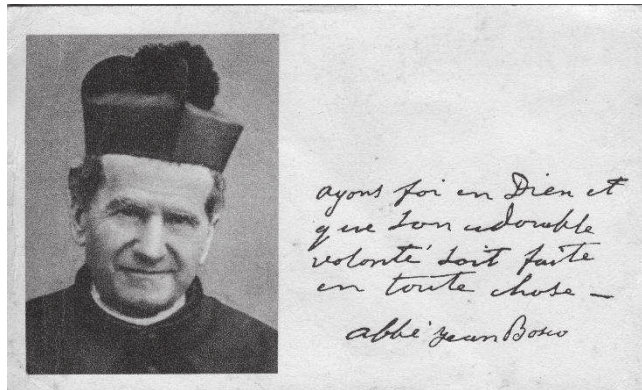 ayons foi en Dieu et
que son adorable
volonté soit faite
en toute chose –
abbé Jean Bosco